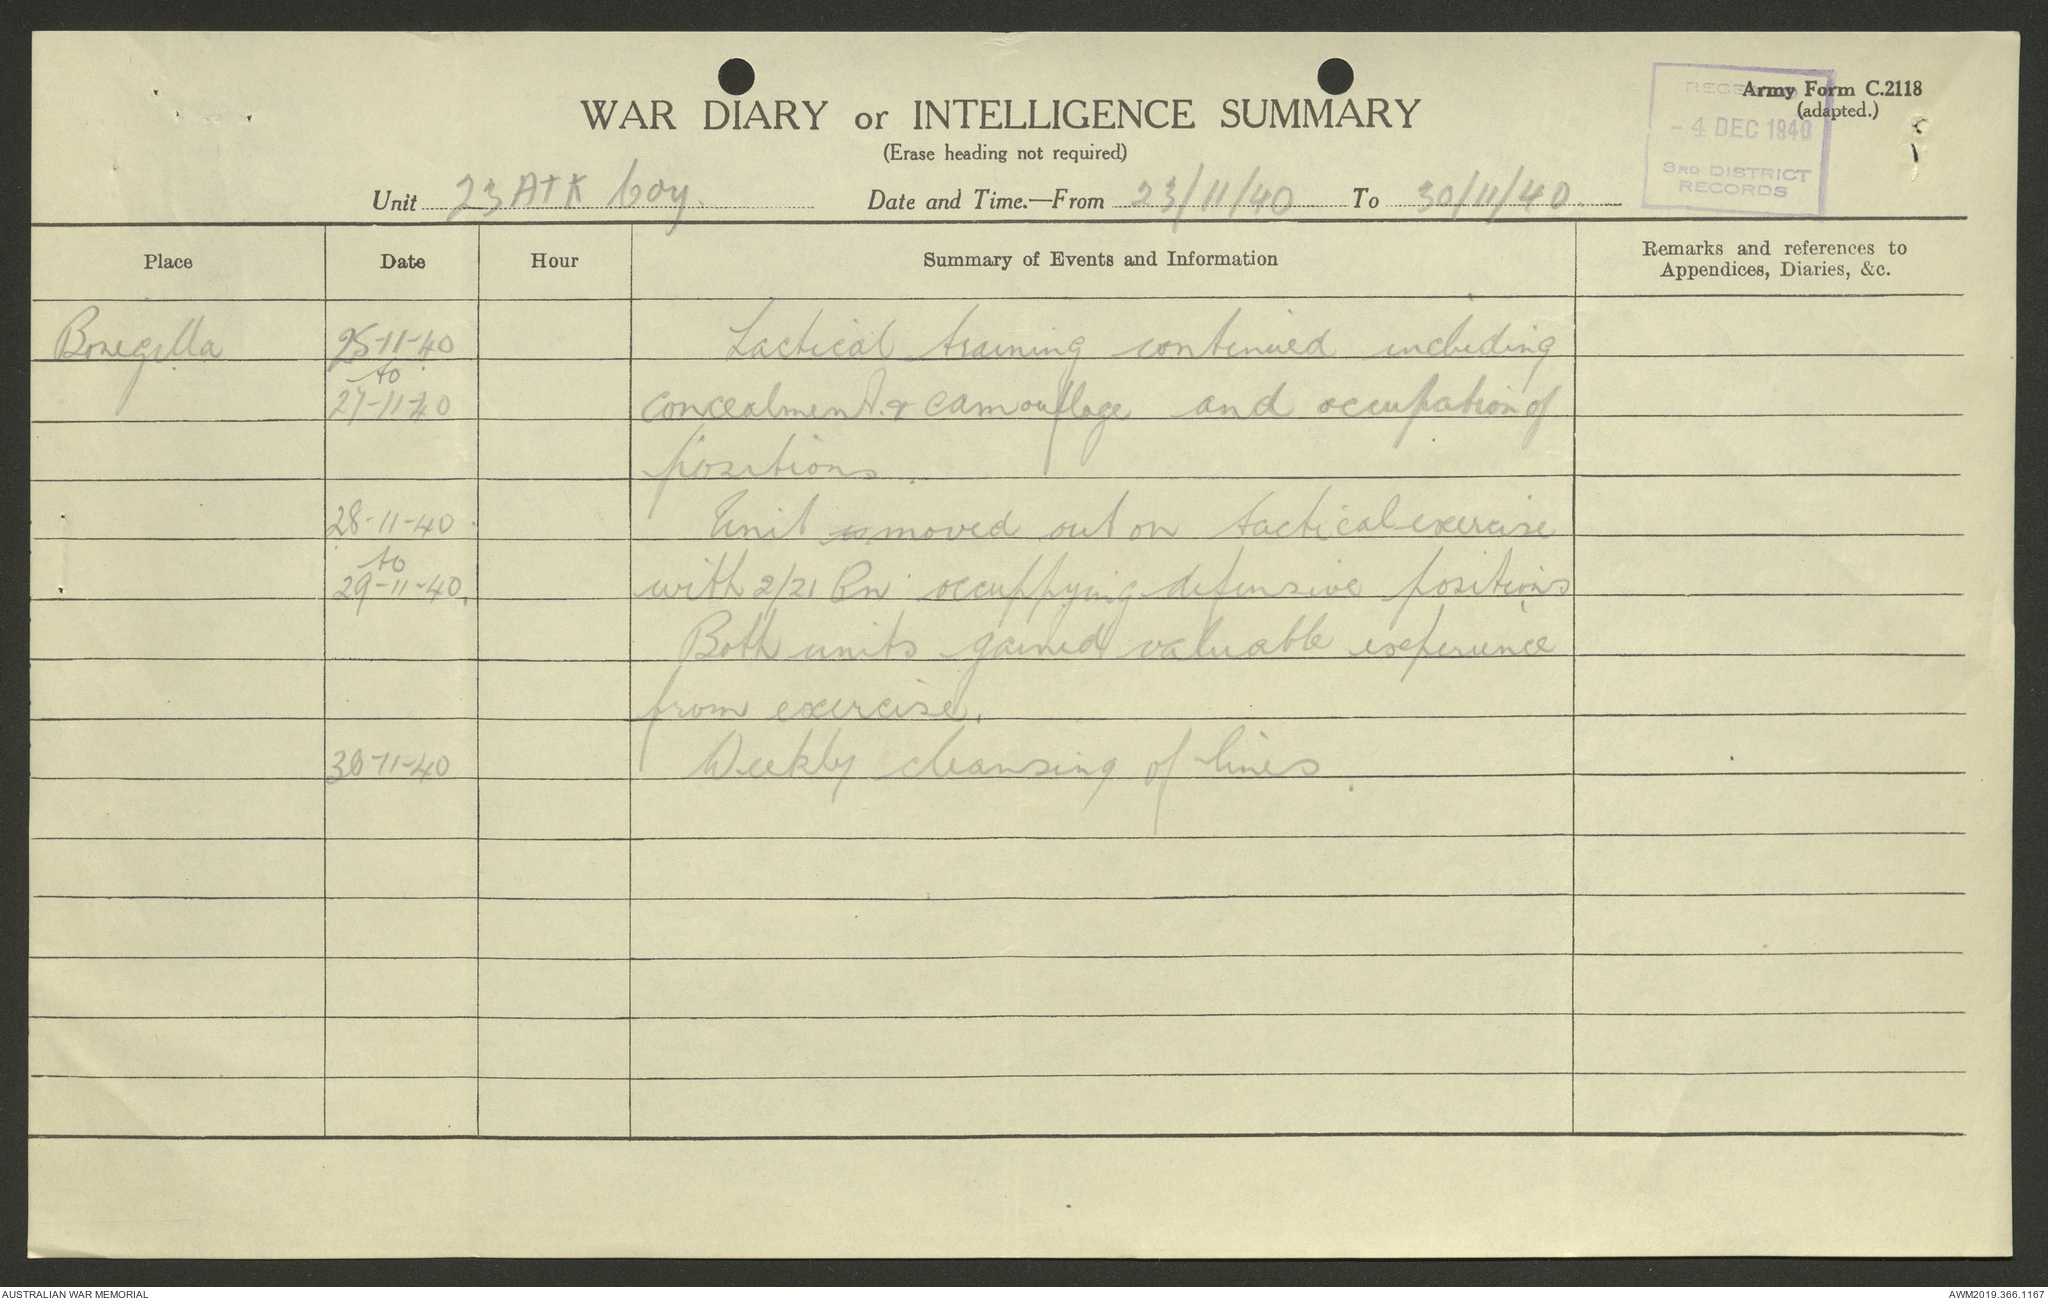 WAR DIARY or INTELLIGENCE SUMMARY
(Erase heading not required)
Army Form C.2118
(adapted.)
RECEIVED
- 4 DEC 1940
3RD DISTRICT
RECORDS
Unit 23 A TK Coy. Date and Time.—From 23/11/40 To 30/11/40.
Place Date Hour Summary of Events and Information Remarks and references to
Appendices, Diaries, &c.
Bonegilla 25-11-40 Tactical training continued including
to
27-11-40 concealment & camouflage and occupation of
positions.
28-11-40 Unit moved out on tactical exercise
to
29-11-40. with 2/21 Bn occuppying defensive positions
Both units gained valuable experience
from exercise.
30-11-40 Weekly cleansing of lines.
AUSTRALIAN WAR MEMORIAL AWM2019.366.1167